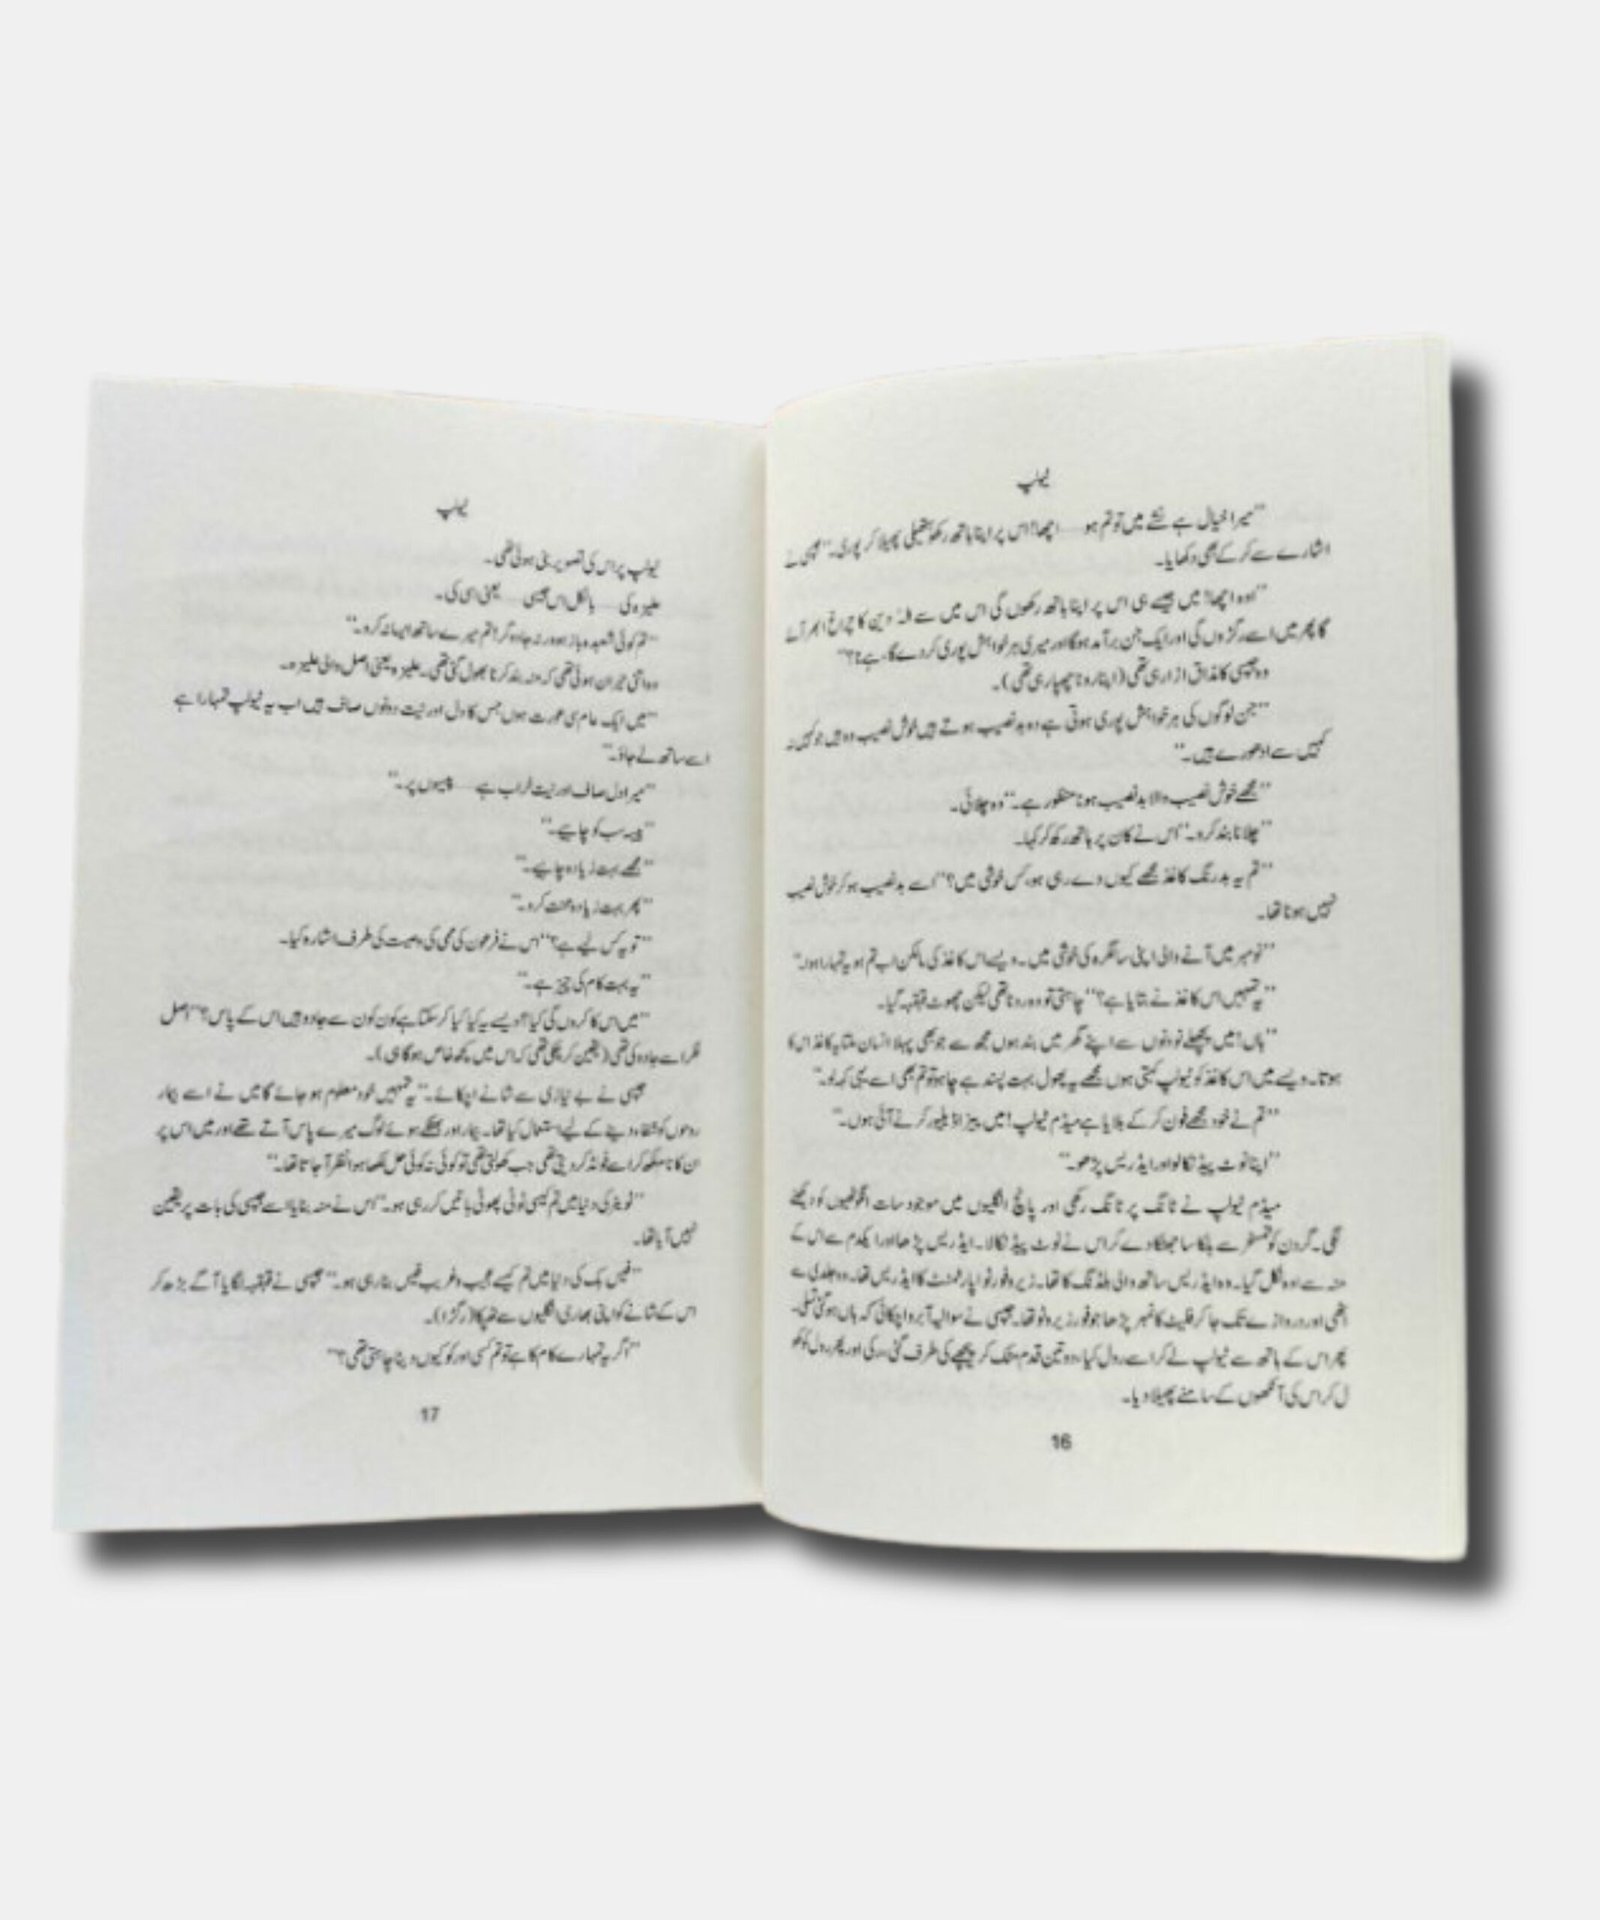 ٹیولپ
”میرا خیال ہے نشے میں تو تم ہو—— اچھا! اس پر اپنا ہاتھ رکھو ہتھیلی پھیلا کر پوری۔“ جپسی نے
اشارے سے کر کے بھی دکھایا۔
”اوہ اچھا! میں جیسے ہی اس پر اپنا ہاتھ رکھوں گی اس میں سے الہ دین کا چراغ ابھر آئے
گا پھر میں اسے رگڑوں گی اور ایک جن برآمد ہوگا اور میری ہر خواہش پوری کر دے گا، ہے نا؟“
وہ جپسی کا مذاق اڑا رہی تھی (اپنا رونا چھپا رہی تھی)۔
”جن لوگوں کی ہر خواہش پوری ہوتی ہے وہ بدنصیب ہوتے ہیں خوش نصیب وہ ہیں جو کہیں نہ
کہیں سے ادھورے ہیں۔“
”مجھے خوش نصیب والا بدنصیب ہونا منظور ہے۔“ وہ چلائی۔
”چلانا بند کرو۔“ اس نے کان پر ہاتھ رکھ کر کہا۔
”تم یہ بدرنگ کاغذ مجھے کیوں دے رہی ہو، کس خوشی میں؟“ اسے بدنصیب ہو کر خوش نصیب
نہیں ہونا تھا۔
”نومبر میں آنے والی اپنی سالگرہ کی خوشی میں۔ ویسے اس کاغذ کی مالکن اب تم ہو یہ تمہارا ہوا۔“
”یہ تمہیں اس کاغذ نے بتایا ہے؟“ چاہتی تو وہ رونا تھی لیکن پھوٹ قہقہہ گیا۔
”ہاں! میں پچھلے نو دنوں سے اپنے گھر میں بند ہوں مجھ سے جو بھی پہلا انسان ملتا یہ کاغذ اس کا
ہوتا۔ ویسے میں اس کاغذ کو ٹیولپ کہتی ہوں مجھے یہ پھول بہت پسند ہے چاہو تو تم بھی اسے یہی کہہ لو۔“
”تم نے خود مجھے فون کر کے بلایا ہے میڈم ٹیولپ! میں پیزا ڈیلیور کرنے آئی ہوں۔“
”اپنا نوٹ پیڈ نکالو اور ایڈریس پڑھو۔“
میڈم ٹیولپ نے ٹانگ پر ٹانگ رکھی اور پانچ انگلیوں میں موجود سات انگوٹھیوں کو دیکھنے
لگی۔ گردن کو تمسخر سے ہلکا سا جھٹکا دے کر اس نے نوٹ پیڈ نکالا۔ ایڈریس پڑھا اور ایکدم سے اس کے
منہ سے اوہ نکل گیا۔ وہ ایڈریس ساتھ والی بلڈنگ کا تھا۔ زیرو فور ٹو اپارٹمنٹ کا ایڈریس تھا۔ وہ جلدی سے
اٹھی اور دروازے تک جا کر فلیٹ کا نمبر پڑھا جو فور زیرو ٹو تھا۔ جپسی نے سوالیہ آبرو اچکائی کہ ہاں ہو گئی تسلی۔
پھر اس کے ہاتھ سے ٹیولپ لے کر اسے رول کیا، دو تین قدم پیچھے کی طرف گئی، رکی اور پھر رول کو کھو
ل کر اس کی آنکھوں کے سامنے پھیلا دیا۔
16
ٹیولپ
ٹیولپ پر اس کی تصویر بنی ہوئی تھی۔
علیزہ کی—— بالکل اس جیسی—— یعنی اسی کی۔
”تم کوئی شعبدہ باز ہو ورنہ جادوگر! تم میرے ساتھ ایسا نہ کرو۔“
وہ اتنی حیران ہوئی تھی کہ منہ بند کرنا بھول گئی تھی۔ علیزہ یعنی اصل والی علیزہ۔
”میں ایک عام سی عورت ہوں جس کا دل اور نیت دونوں صاف ہیں اب یہ ٹیولپ تمہارا ہے
اسے ساتھ لے جاؤ۔“
”میرا دل صاف اور نیت خراب ہے—— پیسوں پر۔“
”پیسہ سب کو چاہیے۔“
”مجھے بہت زیادہ چاہیے۔“
”پھر بہت زیادہ محنت کرو۔“
”تو یہ کس لیے ہے؟“ اس نے فرعون کی ممی کی وصیت کی طرف اشارہ کیا۔
”یہ بہت کام کی چیز ہے۔“
”میں اس کا کروں گی کیا؟ ویسے یہ کیا کیا کر سکتا ہے کون کون سے جادو ہیں اس کے پاس؟“ اصل
فکر اسے جادو کی تھی (یقین کر چکی تھی کہ اس میں کچھ خاص ہو گا ہی)۔
جپسی نے بے نیازی سے شانے اچکائے۔ ”یہ تمہیں خود معلوم ہو جائے گا میں نے اسے بیمار
روحوں کو شفاء دینے کے لیے استعمال کیا تھا۔ بیمار اور بھٹکے ہوئے لوگ میرے پاس آتے تھے اور میں اس پر
ان کا نام لکھ کر اسے فولڈ کر دیتی تھی جب کھولتی تھی تو کوئی نہ کوئی حل لکھا ہوا نظر آ جاتا تھا۔“
”ٹویٹر کی دنیا میں تم کیسی ٹوٹی پھوٹی باتیں کر رہی ہو۔“ اس نے منہ بنایا اسے جپسی کی بات پر یقین
نہیں آیا تھا۔
”فیس بک کی دنیا میں تم کیسے عجیب و غریب فیس بنا رہی ہو۔“ جپسی نے قہقہہ لگایا آگے بڑھ کر
اس کے شانے کو اپنی بھاری انگلیوں سے تھپکا (رگڑا)۔
”اگر یہ تمہارے کام کا ہے تو تم کسی اور کو کیوں دینا چاہتی تھی؟“
17